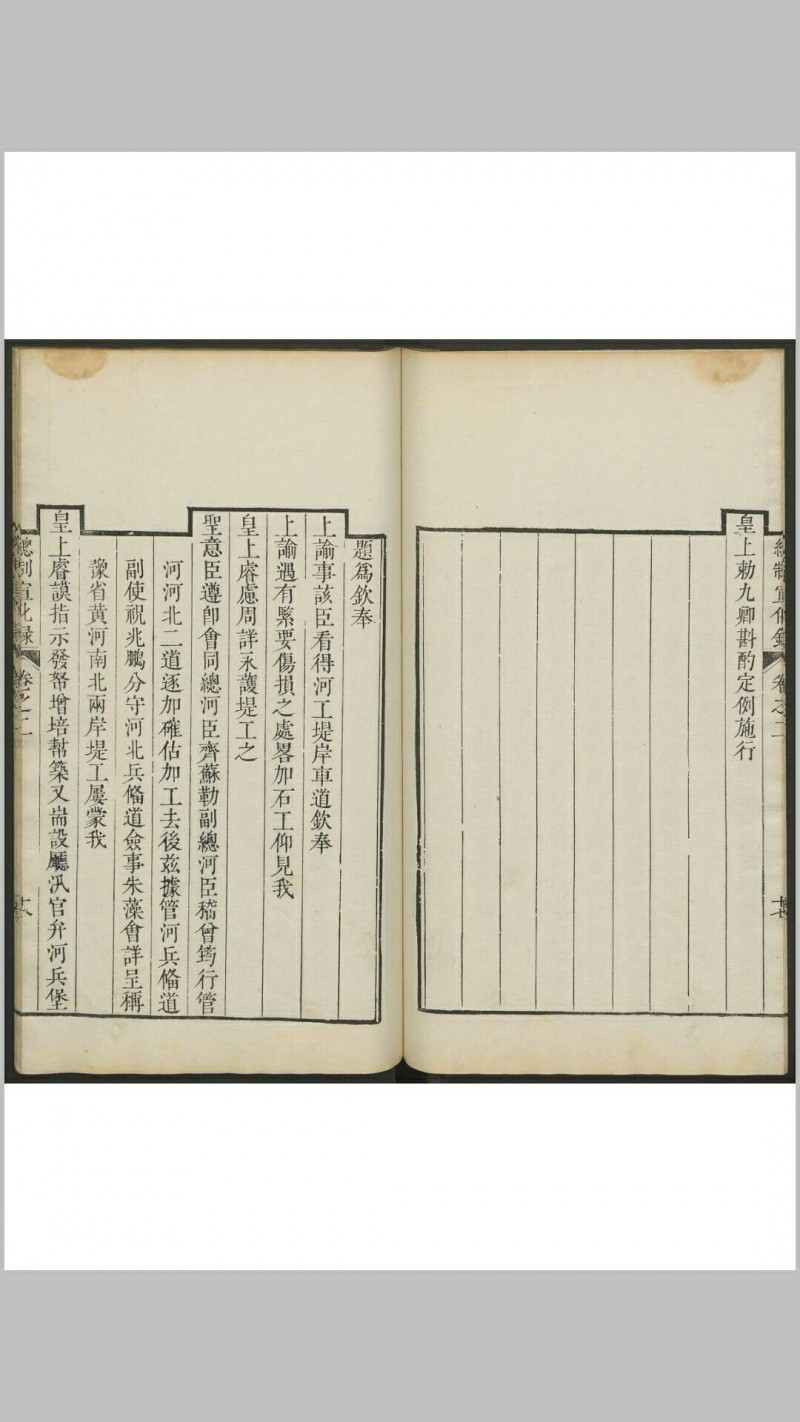 總制宣化錄 卷之二
皇上勅九卿斟酌定例施行
題爲欽奉
上諭事該臣看得河工堤岸車道欽奉
上諭遇有緊要傷損之處畧加石工仰見我
皇上睿慮周詳永護堤工之
聖意臣遵卽會同總河臣齊蘇勒副總河臣嵇曾筠行管
河河北二道逐加確估加工去後玆據管河兵備道
副使祝兆鵬分守河北兵備道僉事朱藻會詳呈稱
豫省黃河南北兩岸堤工屢蒙我
皇上睿謨指示發帑增培幫築又耑設廳汛官弁河兵堡
總制宣化録 卷之二